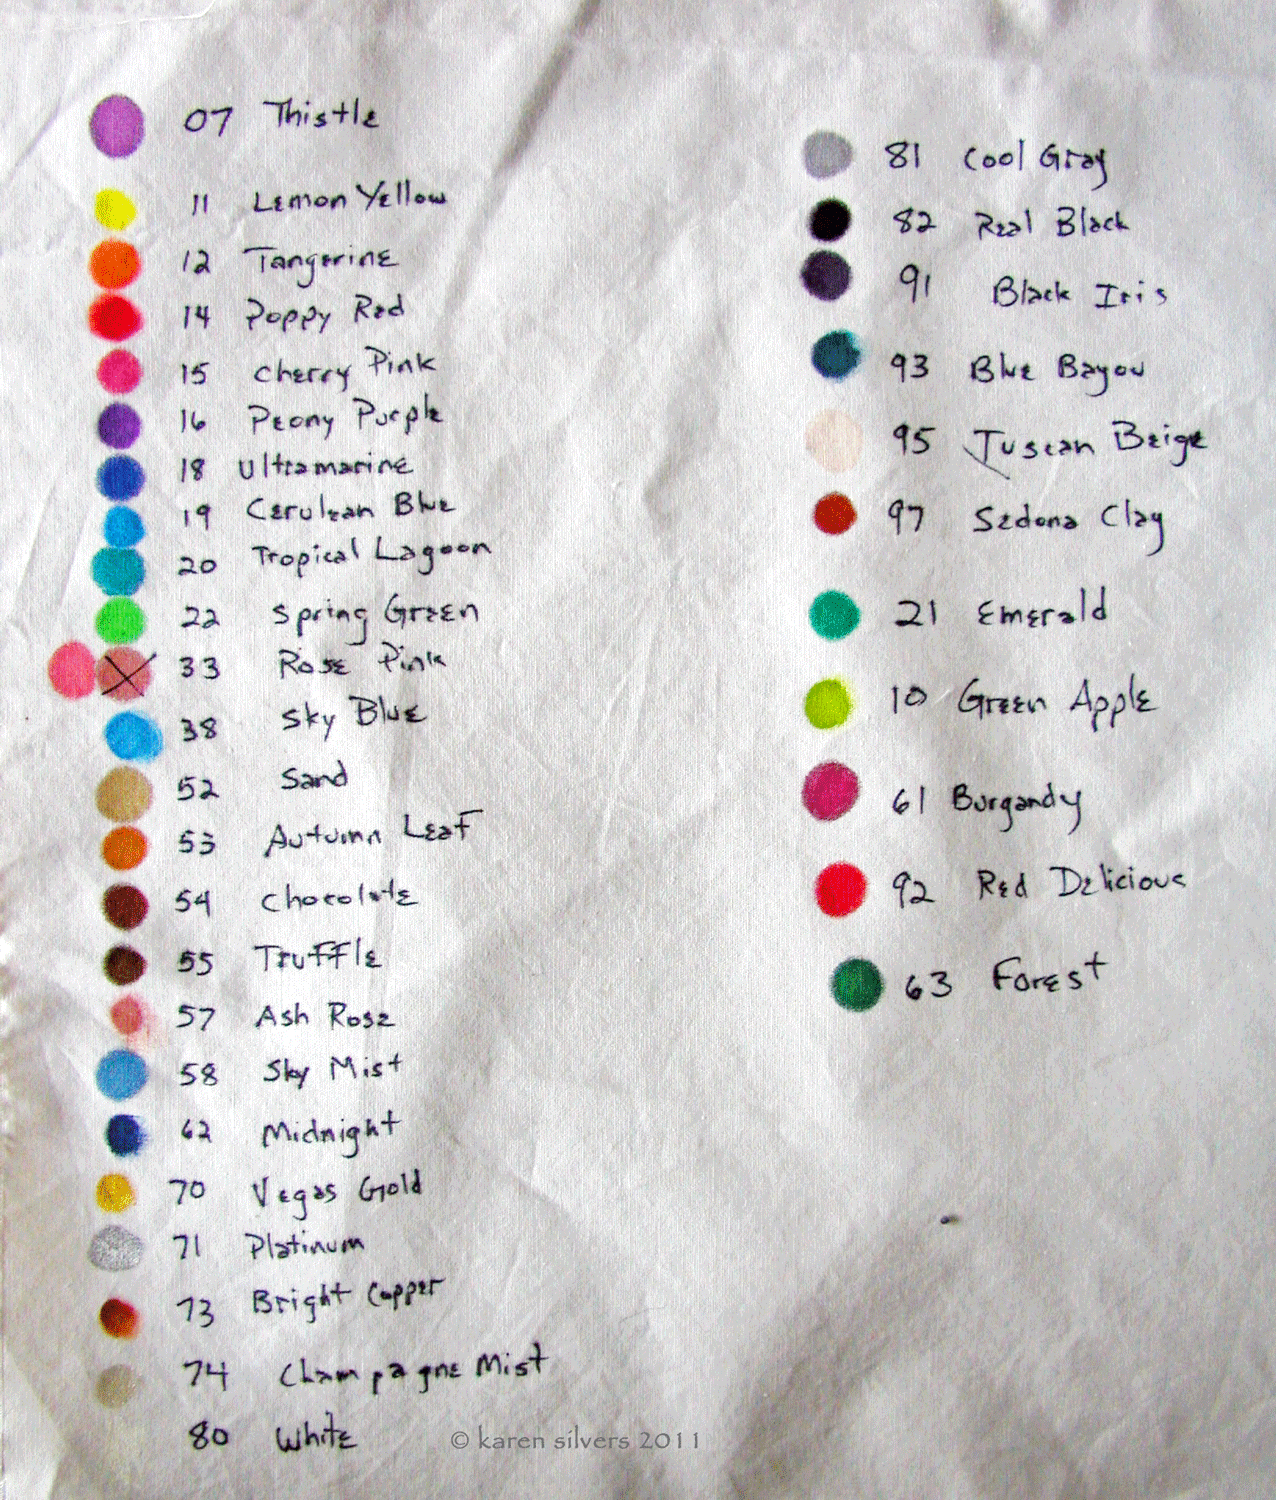 07 Thistle
11 Lemon Yellow
12 Tangerine
14 Poppy Red
15 Cherry Pink
16 Peony Purple
18 Ultramarine
19 Cerulean Blue
20 Tropical Lagoon
22 Spring Green
33 Rose Pink
38 Sky Blue
52 Sand
53 Autumn Leaf
54 Chocolate
55 Truffle
57 Ash Rose
58 Sky Mist
62 Midnight
70 Vegas Gold
71 Platinum
73 Bright Copper
74 Champagne Mist
80 White
81 Cool Gray
82 Real Black
91 Black Iris
93 Blue Bayou
95 Tuscan Beige
97 Sedona Clay
21 Emerald
10 Green Apple
61 Burgandy
92 Red Delicious
63 Forest
© karen silvers 2011